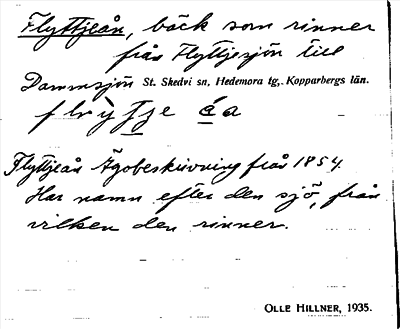 Flyttjeån, bäck som rinner
från Flyttjesjön till
Dammsjön St. Skedvi sn, Hedemora tg., Kopparbergs län.
Flyttjeån Ägobeskrivning från 1854.
Har namn efter den sjö, från
vilken den rinner.
OLLE HILLNER, 1935.